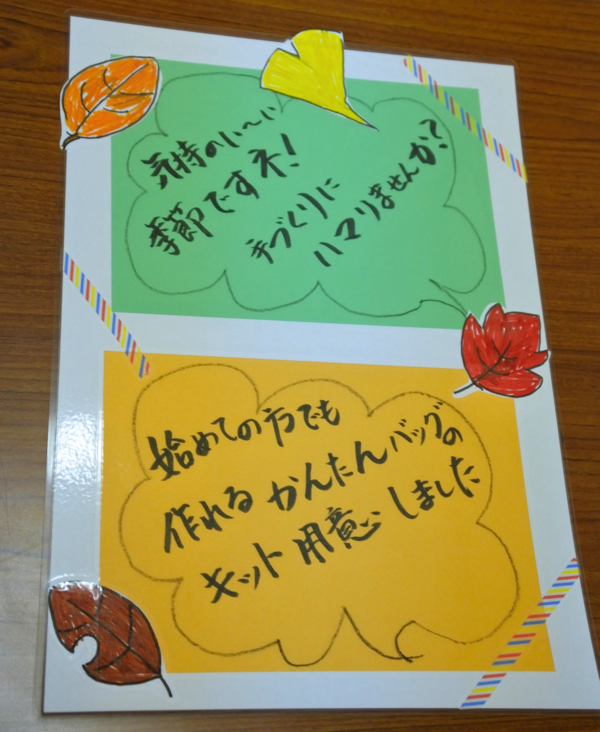 気持のい〜い
季節ですネ!
手づくりに
ハマりませんか?
始めての方でも
作れるかんたんバッグの
キット用意しました